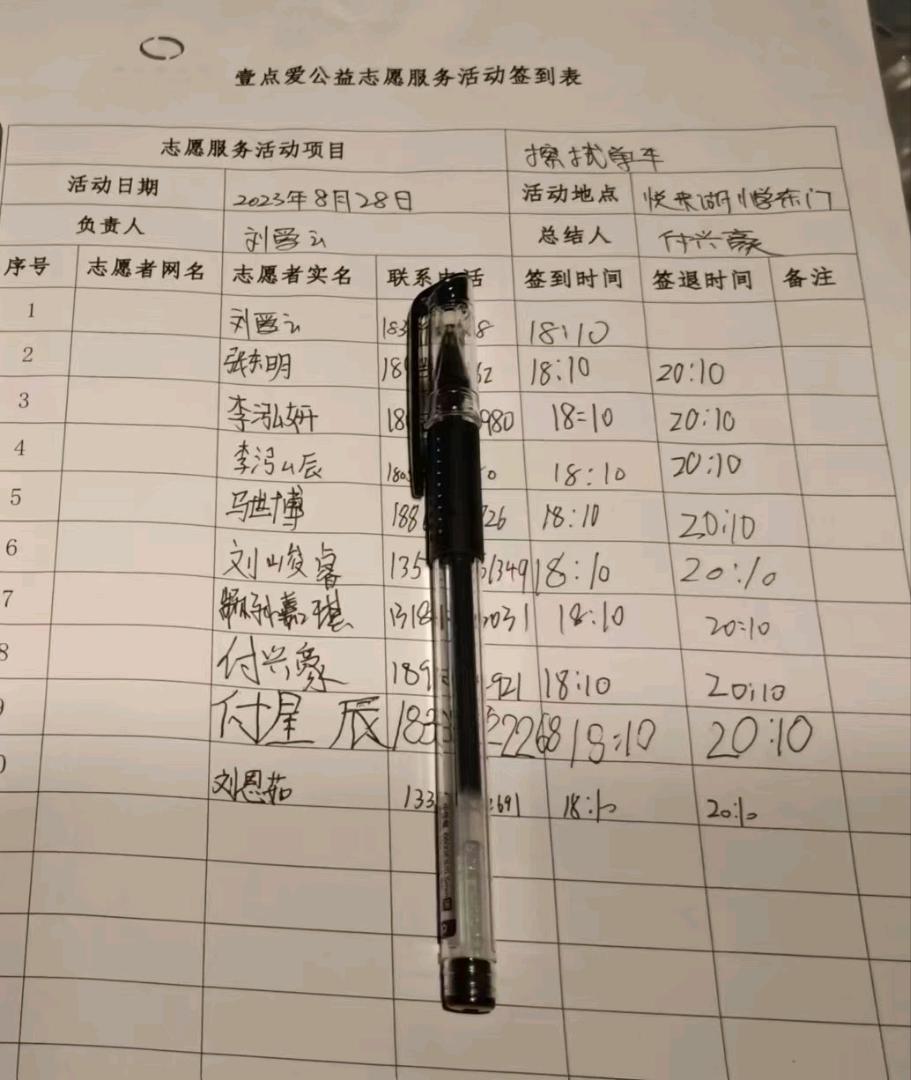 壹点爱公益志愿服务活动签到表
志愿服务活动项目 擦拭单车
活动日期 2023年8月28日 活动地点 悦来湖 东门
负责人 刘 云 总结人 付兴豪
序号 志愿者网名 志愿者实名 联系 话 签到时间 签退时间 备注
1 刘 云 183 8 18:10
2 张东明 18 62 18:10 20:10
3 李泓妍 18 980 18:10 20:10
4 李泓辰 180 0 18:10 20:10
5 马世博 188 26 18:10 20:10
6 刘峻睿 135 1349 18:10 20:10
7 嘉琪 1318 031 18:10 20:10
8 付兴豪 189 921 18:10 20:10
付星辰 183 2268 18:10 20:10
0 刘恩茹 133 691 18:10 20:10